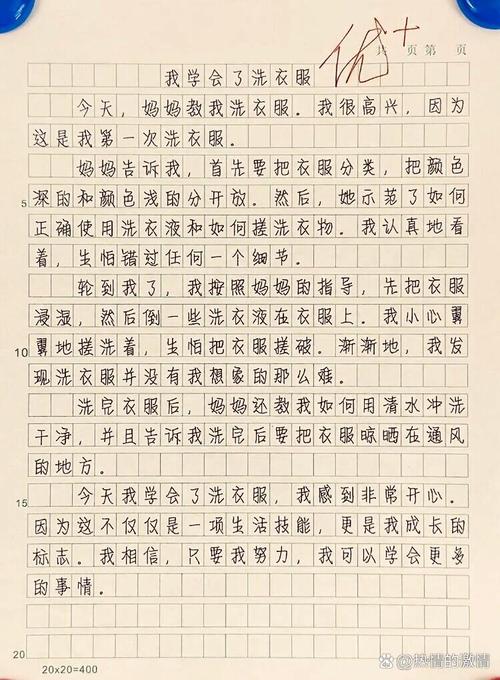 优+
共 页 第 页
我学会了洗衣服
今天，妈妈教我洗衣服。我很高兴，因为
这是我第一次洗衣服。
妈妈告诉我，首先要把衣服分类，把颜色
深的和颜色浅的分开放。然后，她示范了如何
5
正确使用洗衣液和如何搓洗衣物。我认真地看
着，生怕错过任何一个细节。
轮到我了，我按照妈妈的指导，先把衣服
浸湿，然后倒一些洗衣液在衣服上。我小心翼
翼地搓洗着，生怕把衣服搓破。渐渐地，我发
10
现洗衣服并没有我想象的那么难。
洗完衣服后，妈妈还教我如何用清水冲洗
干净，并且告诉我洗完后要把衣服晾晒在通风
的地方。
今天我学会了洗衣服，我感到非常开心。
15
因为这不仅仅是一项生活技能，更是我成长的
标志。我相信，只要我努力，我可以学会更多
的事情。
20
20×20=400
百家号/热情的激情